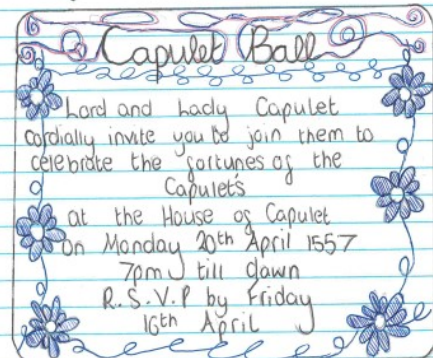 Capulet Ball
Lord and Lady Capulet
cordially invite you to join them to
celebrate the fortunes of the
Capulet's
at the House of Capulet
On Monday 20th April 1557
7pm till dawn
R.S.V.P by Friday
16th April